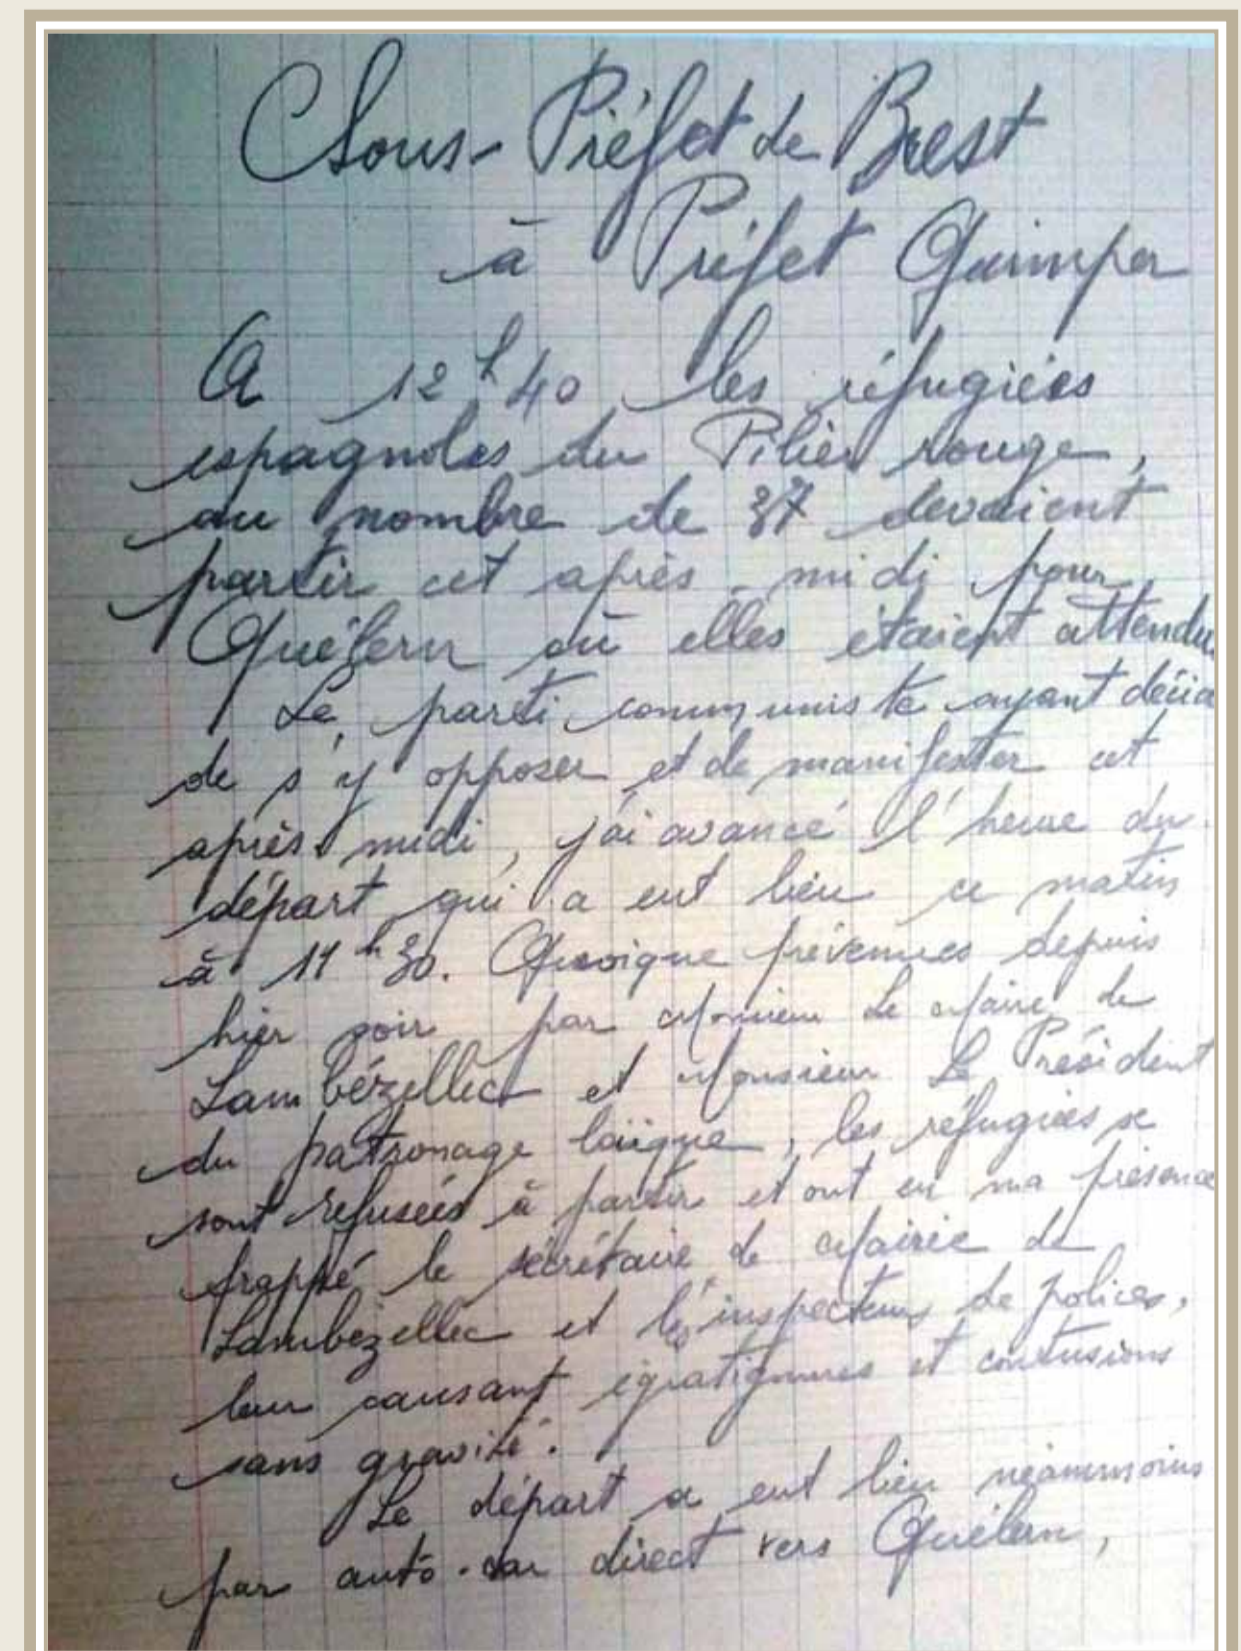 Sous-Préfet de Brest
à Préfet Quimper
A 12h40 les réfugiées
espagnoles du Pilier rouge,
au nombre de 37 devaient
partir cet après-midi pour
Quélern où elles étaient attendu
Le parti communiste ayant décid
de s'y opposer et de manifester cet
après midi, j'ai avancé l'heure du
départ qui a eut lieu ce matin
à 11h30. Quoique prévenues depuis
hier soir par Monsieur Le Maire de
Lambézellec et Monsieur Le Président
du patronage laïque, les réfugiées se
sont refusées à partir et ont en ma présence
frappé le secrétaire de Mairie de
Lambézellec et les inspecteurs de polices,
leur causant égratignures et contusions
sans gravité.
Le départ a eut lieu néammoins
par auto-car direct vers Quélern,